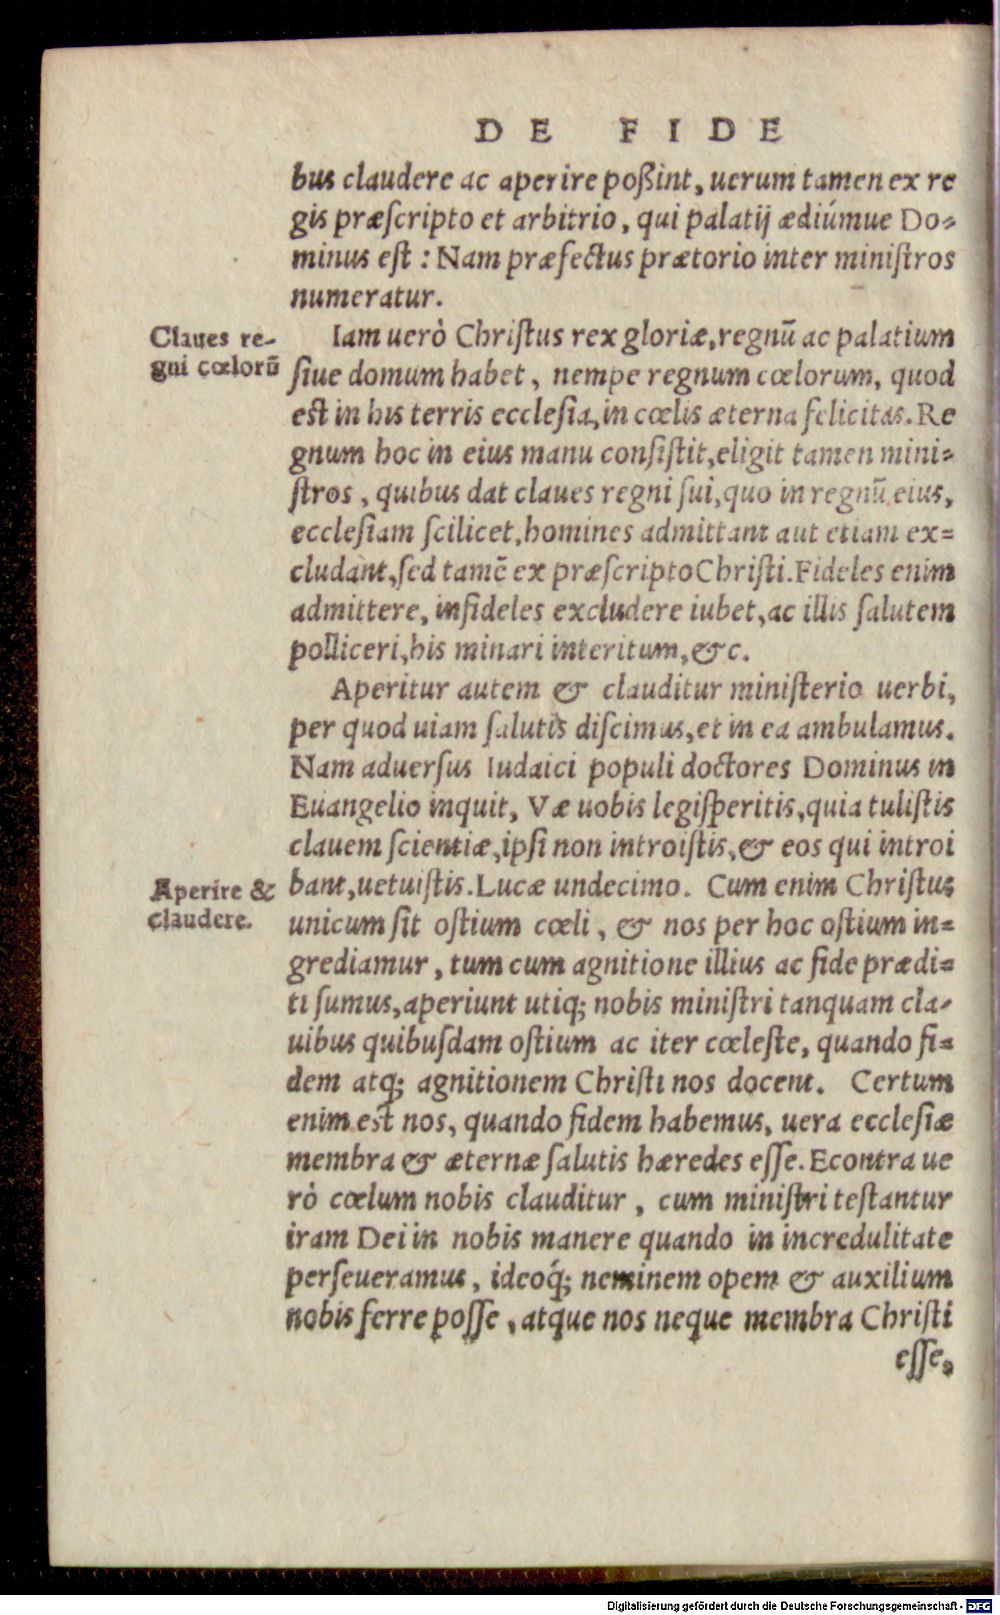 DE FIDE
bus claudere ac aperire poßint, uerum tamen ex re
gis præſcripto et arbitrio, qui palatij ædiúmue Do-
minus eſt : Nam præfectus prætorio inter miniſtros
numeratur.
Claues re-
gni cœlorū
Iam uerò Chriſtus rex gloriæ, regnū ac palatium
ſiue domum habet, nempe regnum cœlorum, quod
eſt in his terris eccleſia, in cœlis æterna felicitas. Re
gnum hoc in eius manu conſiſtit, eligit tamen mini-
ſtros, quibus dat claues regni ſui, quo in regnū eius,
eccleſiam ſcilicet, homines admittant aut etiam ex=
cludant, ſed tamē ex præſcripto Chriſti. Fideles enim
admittere, infideles excludere iubet, ac illis ſalutem
polliceri, his minari interitum, &c.
Aperitur autem & clauditur miniſterio uerbi,
per quod uiam ſalutis diſcimus, et in ea ambulamus.
Nam aduerſus Iudaici populi doctores Dominus in
Euangelio inquit, Væ uobis legiſperitis, quia tuliſtis
clauem ſcientiæ, ipſi non introiſtis, & eos qui introi
Aperire &
claudere.
bant, uetuiſtis. Lucæ undecimo. Cum enim Chriſtus
unicum ſit oſtium cœli, & nos per hoc oſtium in=
grediamur, tum cum agnitione illius ac fide prædi=
ti ſumus, aperiunt utiq; nobis miniſtri tanquam cla-
uibus quibuſdam oſtium ac iter cœleſte, quando fi=
dem atq; agnitionem Chriſti nos docent. Certum
enim eſt nos, quando fidem habemus, uera eccleſiæ
membra & æternæ ſalutis hæredes eſſe. Econtra ue
rò cœlum nobis clauditur, cum miniſtri teſtantur
iram Dei in nobis manere quando in incredulitate
perſeueramus, ideoq́; neminem opem & auxilium
nobis ferre poſſe, atque nos neque membra Chriſti
eſſe,
Digitalisierung gefördert durch die Deutsche Forschungsgemeinschaft - DFG